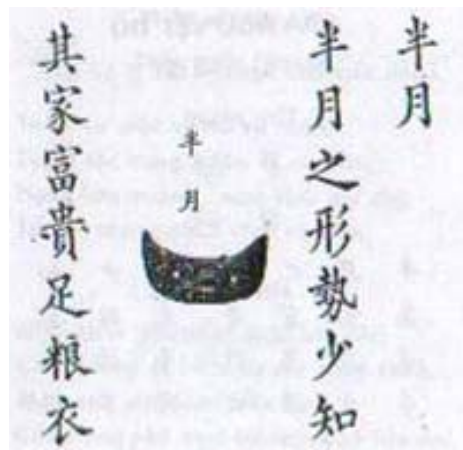 半月
半月之形勢少知
半月
其家富貴足粮衣